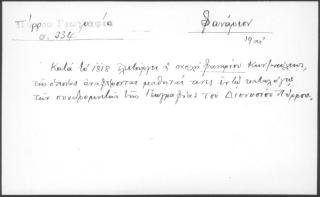 Πύρρου Γεωγραφία
σ. 334
Φανάριον
19ος
Κατά τό 1818 ἐλειτούργει ἡ σχολή Φαναρίου Κων/πόλεως,
τῆς ὁποίας ἀναφέρονται μαθηταί τινες ἐν τῷ καταλόγῳ
τῶν συνδρομητῶν τῆς Γεωγραφίας τοῦ Διονυσίου Πύρρου.